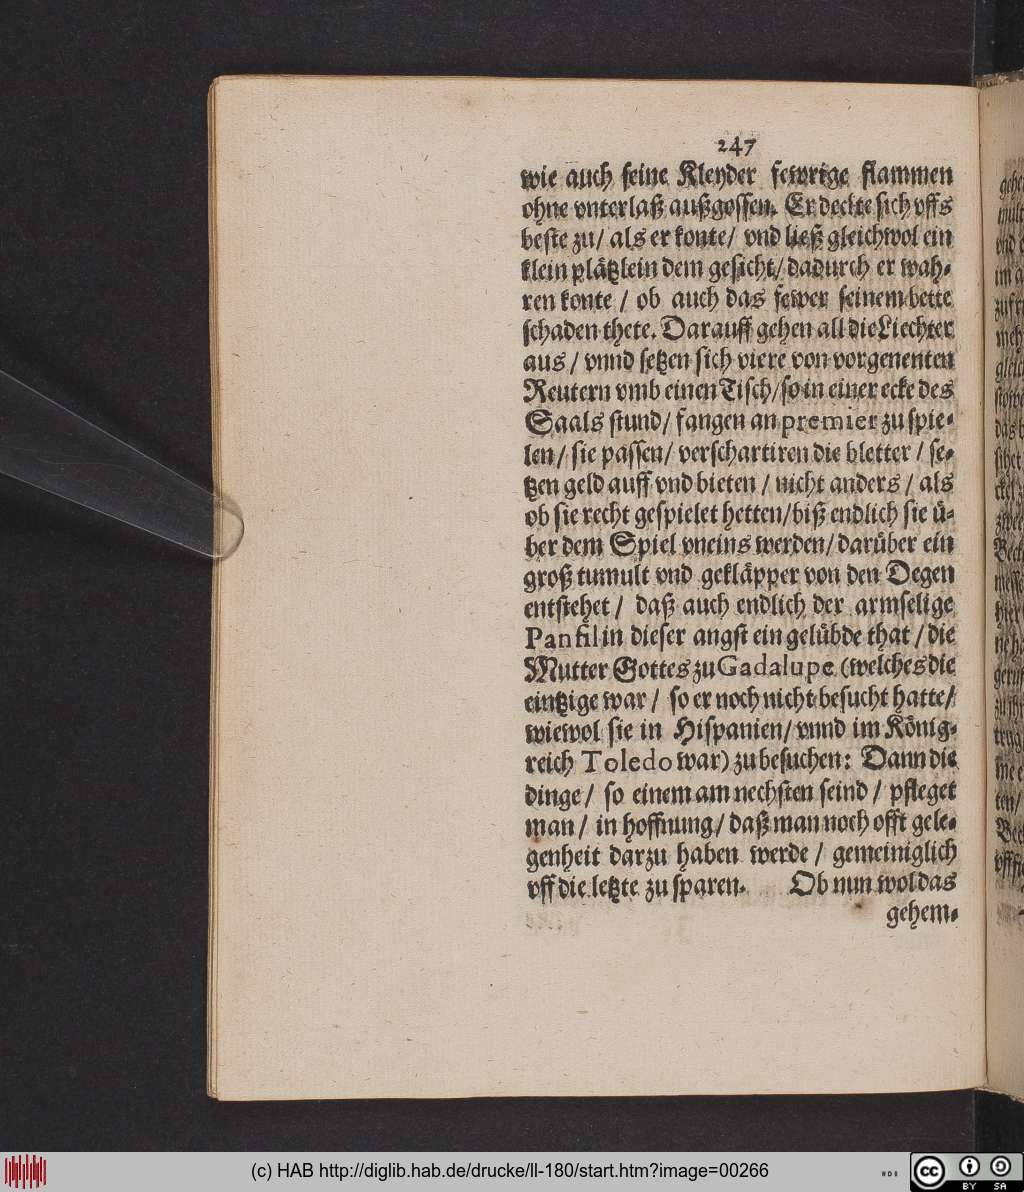 247
wie auch seine Kleyder fewrige flammen
ohne vnterlaß außgossen. Er deckte sich vffs
beste zu/ als er konte/ vnd ließ gleichwol ein
klein plätzlein dem gesicht/ dadurch er wah-
ren konte / ob auch das fewer seinem bette
schaden thete. Darauff gehen all die Liechter
aus / vnnd setzen sich viere von vorgenenten
Reutern vmb einen Tisch/ so in einer ecke des
Saals stund/ fangen an premier zu spie-
len/ sie passen/ verschartiren die bletter / se-
tzen geld auff vnd bieten / nicht anders / als
ob sie recht gespielet hetten/ biß endlich sie ü-
ber dem Spiel vneins werden/ darüber ein
groß tumult vnd gekläpper von den Degen
entstehet / daß auch endlich der armselige
Panfil in dieser angst ein gelübde that / die
Mutter Gottes zu Gadalupe (welches die
eintzige war / so er noch nicht besucht hatte/
wiewol sie in Hispanien/ vnnd im König-
reich Toledo war) zu besuchen: Dann die
dinge / so einem am nechsten seind / pfleget
man / in hoffnung/ daß man noch offt gele-
genheit darzu haben werde / gemeiniglich
vff die letzte zu sparen. Ob nun wol das
gehem-
(c) HAB http://diglib.hab.de/drucke/ll-180/start.htm?image=00266
cc BY SA